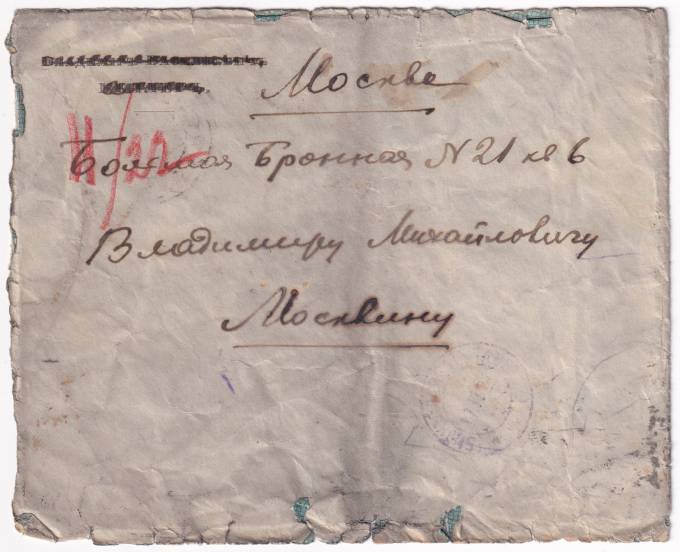 Москва
11/22
Большая Бронная N 21 кв 6
Владимиру Михайловичу
Москвину